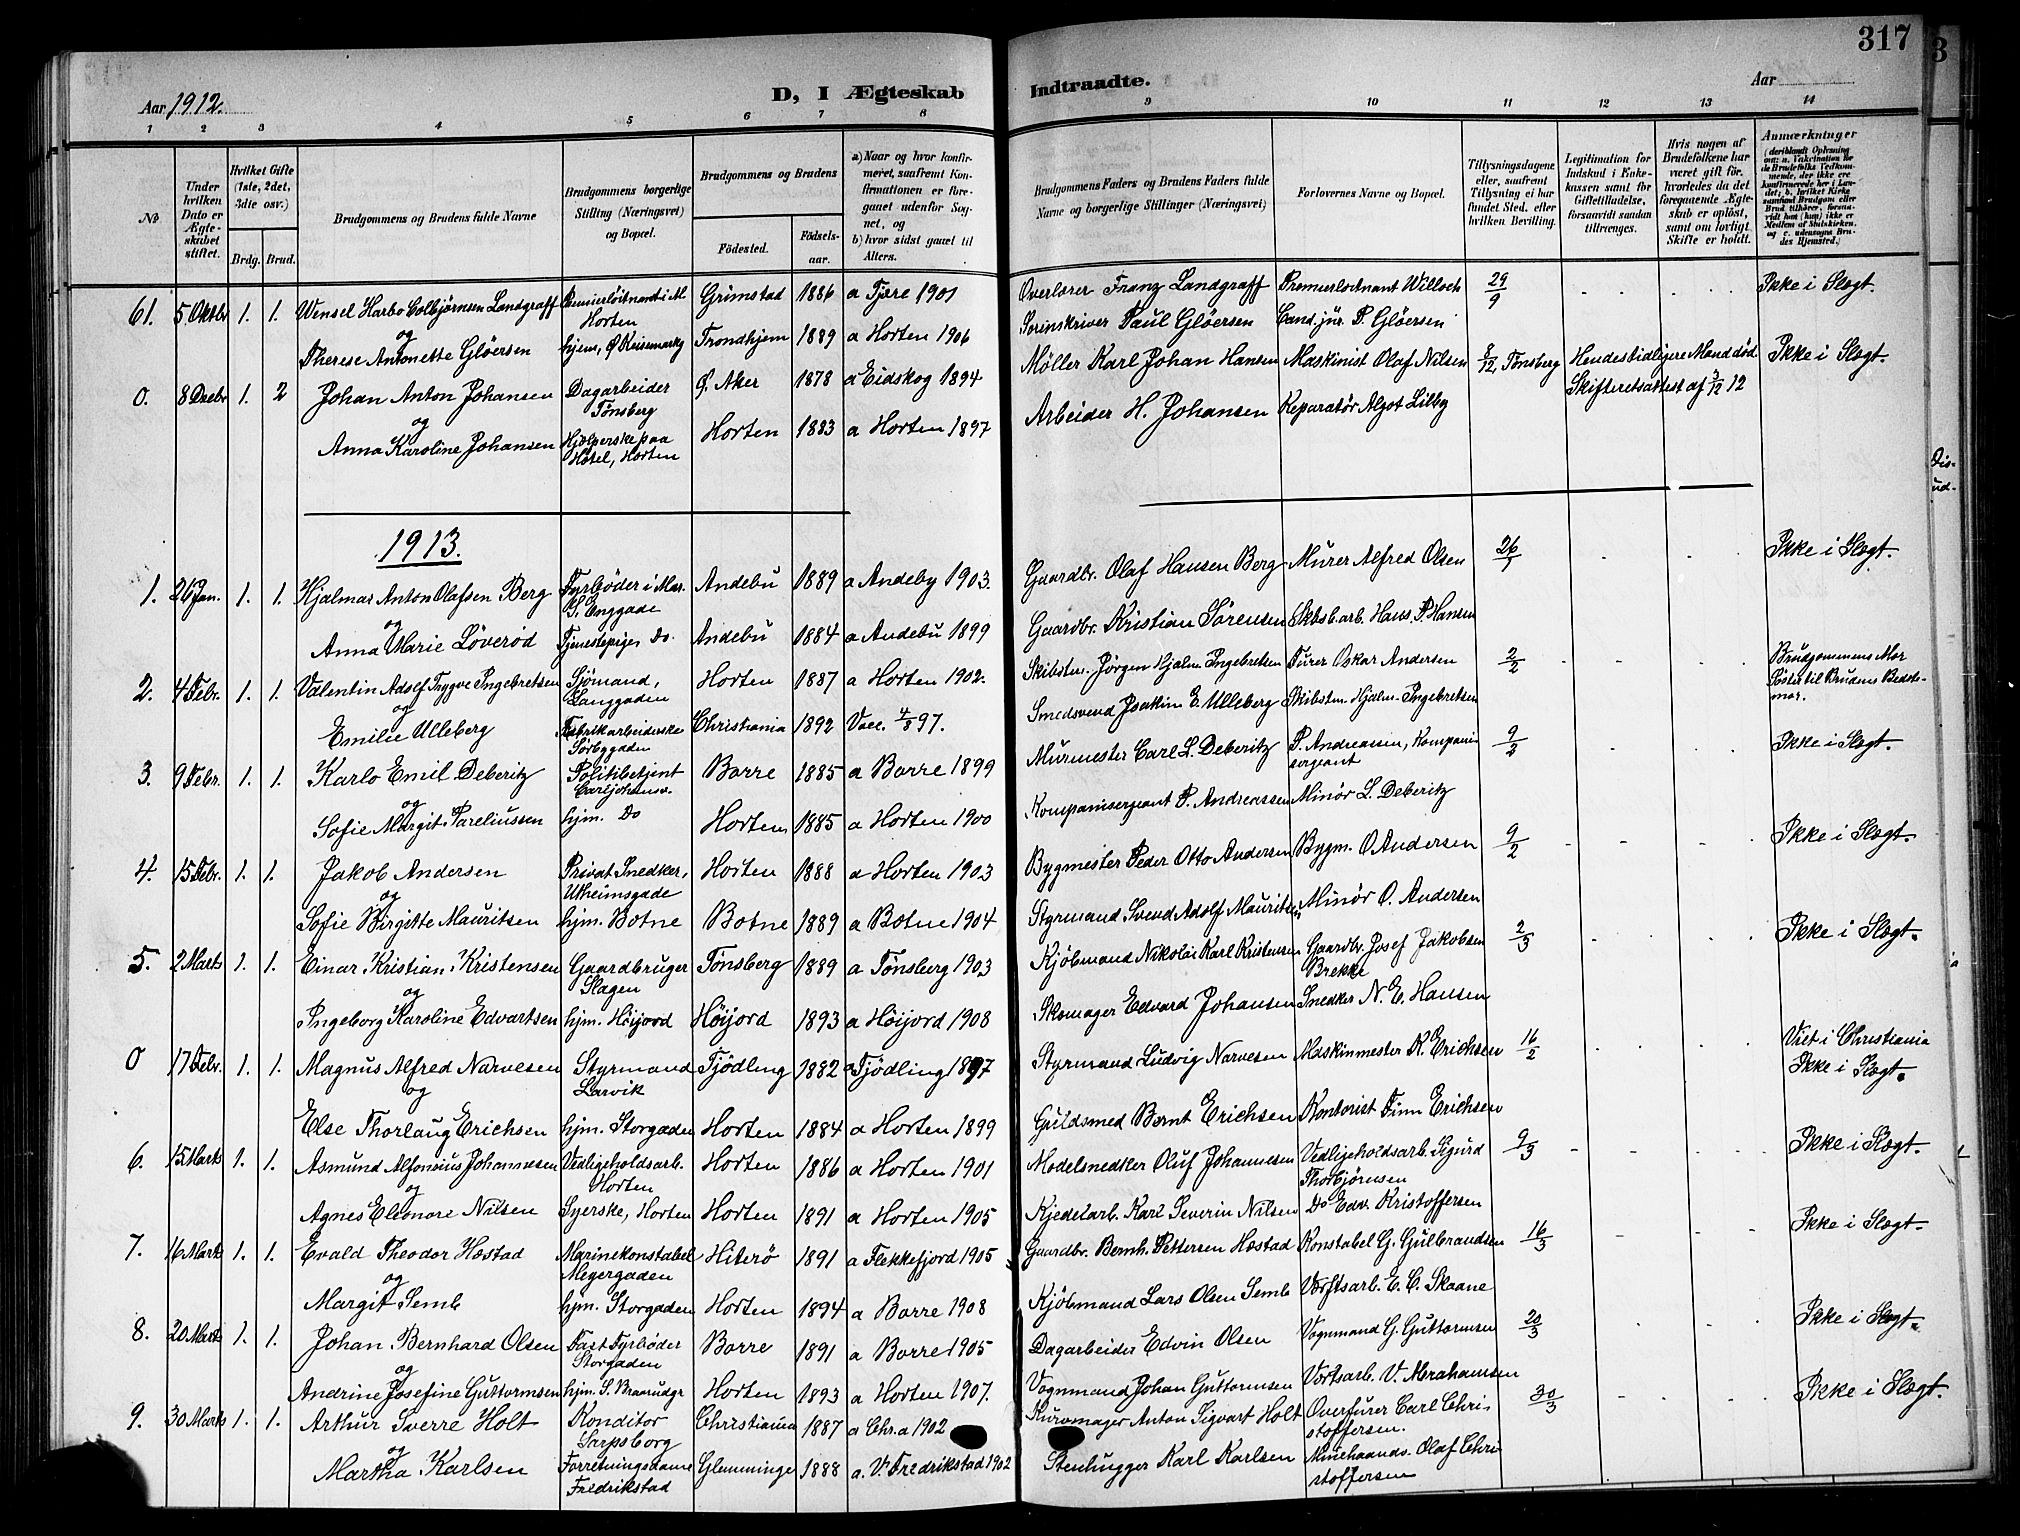 317
Aar 1912.
D, I Ægteskab
Indtraadte.
Aar
1 2 3 4 5 6 7 8 9 10 11 12 13 14
No
Under hvilken Dato er Ægteskabet stiftet.
Hvilket Gifte (1ste, 2det, 3dte osv.)
Brdg. Brud.
Brudgommens og Brudens fulde Navne
Brudgommens borgerlige Stilling (Næringsvei) og Bopæl.
Brudgommens og Brudens
Födested. Födsels-aar.
a) Naar og hvor konfirmeret, saafremt Konfirmationen er foregaaet udenfor Sognet, og
b) hvor sidst gaaet til Alters.
Brudgommens Faders og Brudens Faders fulde Navne og borgerlige Stillinger (Næringsvei)
Forlovernes Navne og Bopæl.
Tillysningsdagene eller, saafremt Tillysning ei har fundet Sted, efter hvilken Bevilling.
Legitimation for Indskud i Enkekassen samt for Giftetilladelse, forsaavidt saadan tiltrænges.
Hvis nogen af Brudefolkene har været gift för, hvorledes da det foregaaende Ægteskab er oplöst, samt om lovligt Skifte er holdt.
Anmærkninger
(deriblandt Oplysning om: a. Vakcination for de Brudefolks Vedkommende, der ikke ere konfirmerede her i Landet; b. hvilket Kirkesamfund Brudgom eller Brud tilhörer, forsaavidt han (hun) ikke er Medlem af Statskirken, og c. udensogns Brudes Hjemsted.)
61. 5 Oktbr 1. 1. Wensel Harbo Colbjørnsen Landgraff Premierløitnant i M. Horten Grimstad 1886 a Fjære 1901 Overlærer Franz Landgraff Premierløitnant Willoch 29/9 Ikke i Slægt.
og
Therese Antonette Gløersen hjem, Ø Keisemark Trondhjem 1889 a Horten 1906 Sorinskriver Paul Gløersen Cand. jur. P. Gløersen
0. 8 Decbr 1. 2 Johan Anton Johansen Dagarbeider Tønsberg Ø. Aker 1878 a Eidskog 1894 Møller Karl Johan Hansen Maskinist Olaf Nilsen 8/12, Tønsberg Hendes tidligere Mand død Skifteretsattest af 3/12 12 Ikke i Slægt.
og
Anna Karoline Johansen Hjælperske paa Hotel, Horten Horten 1883 a Horten 1897 Arbeider H. Johansen Reparatør Algot Lilby
1913.
1. 26 Jan. 1. 1. Hjalmar Anton Olafsen Berg Fyrbøder i Mar. S. Enggade Andebu 1889 a Andeby 1903. Gaardbr. Olaf Hansen Berg Murer Alfred Olsen 26/1 Ikke i Slægt.
og
Anna Marie Løverød Tjenestepige, Do. Andebu 1884 a Andebu 1899 Gaardbr. Kristian Sørensen Skbsb.arb. Hans P. Hansen
2. 4 Febr. 1. 1. Valentin Adolf Trygve Ingebretsen Sjömand, Langgaden Horten 1887 a Horten 1902. Skibstm. Jørgen Hjalm. Ingebretsen Furer Oskar Andersen 2/2 Brudgommens Mor Søster til Brudens Bedstemor.
og
Emilie Ulleberg Fabrikarbeiderske Sørbygaden Christiania 1892 Vacc. 4/8 97. Smedsvend Joakim E. Ulleberg Skibstm. Hjalm. Ingebretsen
3. 9 Febr. 1. 1. Karlo Emil Deberitz Politibetjent Carljohansv. Borre 1885 a Borre 1899 Murmester Carl L. Deberitz P. Andreassen, Kompanisergeant 9/2 Ikke i Slægt.
og
Sofie Margit Pareliussen hjm. Do Horten 1885 a Horten 1900 Kompanisergeant P. Andreassen Minør L. Deberitz
4. 15 Febr. 1. 1. Jakob Andersen Privat Snedker, Utheimsgade Horten 1888 a Horten 1903 Bygmester Peder Otto Andersen Bygm. O Andersen 9/2 Ikke i Slægt.
og
Sofie Birgitte Mauritsen hjm. Botne Botne 1889 a Botne 1904 Styrmand Svend Adolf Mauritsen Minør O. Andersen
5. 2 Marts 1. 1. Einar Kristian Kristensen Gaardbruger Slagen Tønsberg 1889 a Tønsberg 1903 Kjøbmand Nikolai Karl Kristensen Gaardbr. Josef Jakobsen Brekke 2/3 Ikke i Slægt.
og
Ingeborg Karoline Edvartsen hjm. Høijord Høijord 1893 a Høijord 1908 Skomager Edvard Johansen Snedker N. E. Hansen
0 17 Febr. 1. 1. Magnus Alfred Narvesen Styrmand Larvik Tjödling 1882 a Tjödling 1897 Styrmand Ludvig Narvesen Maskinmester K. Erichsen 16/2 Viet i Christiania Ikke i Slægt.
og
Else Thorlaug Erichsen hjm. Storgaden Horten 1884 a Horten 1899 Guldsmed Bernt Erichsen Kontorist Finn Erichsen
6. 15 Marts 1. 1. Asmund Alfonsius Johannesen Vedligeholdsarb. Horten Horten 1886 a Horten 1901 Modelsnedker Oluf Johannesen Vedligeholdsarb. Sigurd Thorbjørnsen 9/3 Ikke i Slægt.
og
Agnes Eleonore Nilsen Syerske, Horten Horten 1891 a Horten 1905 Kjedelarb. Karl Severin Nilsen Do Edv. Kristoffersen
7. 16 Marts 1. 1. Evald Theodor Hæstad Marinekonstabel Meyergaden Hiterø 1891 a Flekkefjord 1905 Gaardbr. Bernh. Pettersen Hæstad Konstabel G. Gulbrandsen 16/3 Ikke i Slægt.
og
Margit Semb hjm. Storgaden Horten 1894 a Borre 1908 Kjøbmand Lars Olsen Semb Værftsarb. E. C. Skaane
8. 20 Marts 1. 1. Johan Bernhard Olsen Fast Fyrbøder Storgaden Borre 1891 a Borre 1905 Dagarbeider Edvin Olsen Vognmand G. Guttormsen 20/3 Ikke i Slægt.
og
Andrine Josefine Guttormsen hjm. S. Braarudgt Horten 1893 a Horten 1907. Vognmand Johan Guttormsen Værtsarb. V. Abrahamsen
9. 30 Marts 1. 1. Arthur Sverre Holt Konditor Sarpsborg Christiania 1887 a Chr.a 1902 Kurvmager Anton Sigvart Holt Overfurer Carl Christoffersen. 30/3 Ikke i Slægt.
og
Martha Karlsen Forretningsdame Fredrikstad Glemminge 1888 a. V. Fredrikstad 1902 Stenhugger Karl Karlsen Minehaandv. Olaf Christoffersen